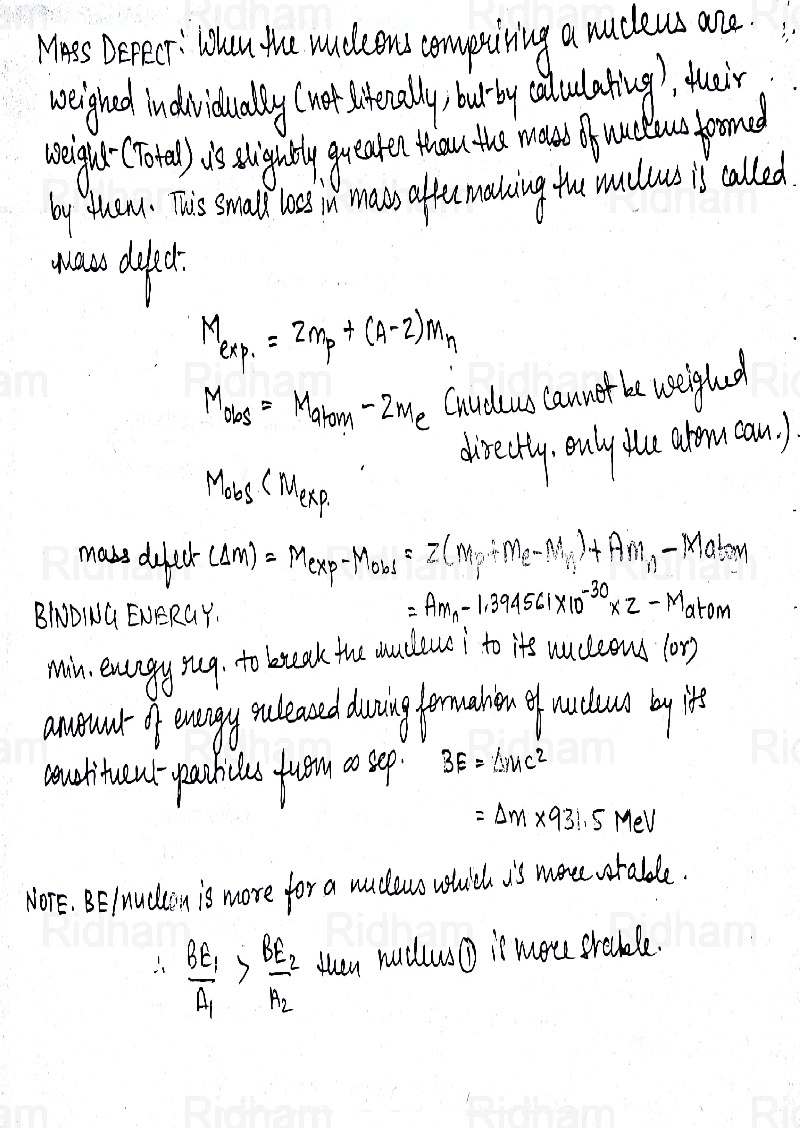 MASS DEFECT: When the nucleons comprising a nucleus are
weighed individually (not literally, but by calculating), their
weight (Total) is slightly greater than the mass of nucleus formed
by them. This small loss in mass after making the nucleus is called
mass defect.
M_exp. = Zm_p + (A-Z)m_n
M_obs = M_atom - Zm_e (nucleus cannot be weighed
directly. only the atom can.)
M_obs < M_exp.
mass defect (Δm) = M_exp - M_obs = Z(m_p + m_e - m_n) + Am_n - Matom
BINDING ENERGY. = Am_n - 1.394561 X 10^-30 x Z - Matom
Min. energy req. to break the nucleus i to its nucleons (or)
amount of energy released during formation of nucleus by its
constituent particles from ∞ sep. BE = Δmc²
= Δm x 931.5 MeV
NOTE. BE/nucleon is more for a nucleus which is more stable.
∴ BE₁/A₁ > BE₂/A₂ then nucleus ① is more stable.
Ridham